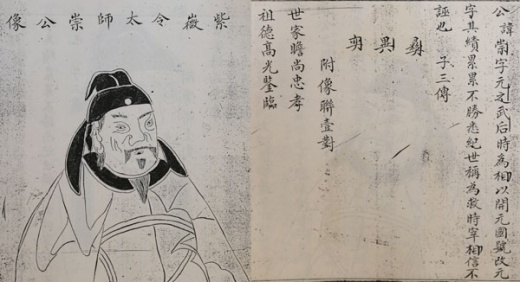 公諱崇字元之武后時為相以開元國號改元
字其績累累不勝悉紀世稱為救時宰相信不
誣也 子三傳
彝 異 奕
附像聯壹對
世家瞻尚忠孝
祖德高光鑒臨
紫薇令太師崇公像